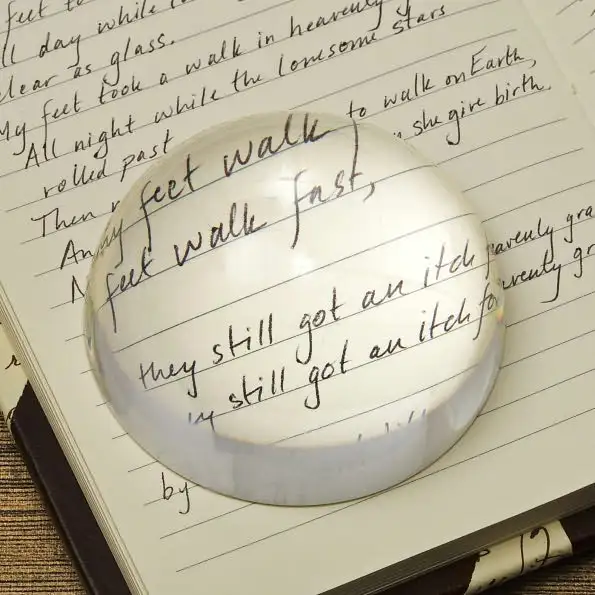 feet to
ll day while
clear as glass.
My feet took a walk in heavenly
All night while the lonesome stars
rolled past
Then to walk on Earth,
An she give birth.
My feet walk
feet walk fast,
they still got an itch heavenly gra
still got an itch for heavenly gr
by